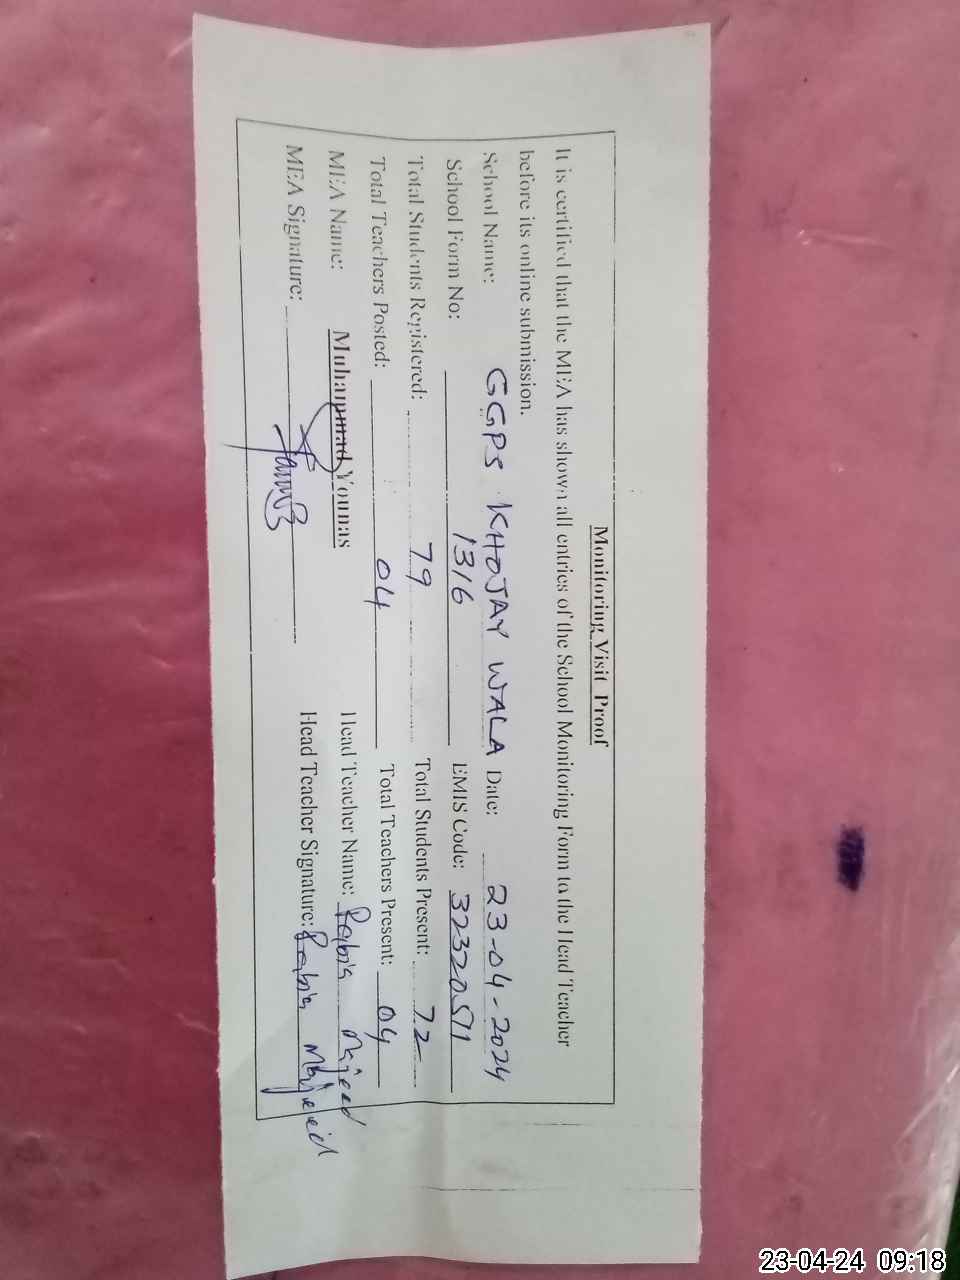 Monitoring Visit Proof
It is certified that the MEA has shown all entries of the School Monitoring Form to the Head Teacher
before its online submission.
School Name: GGPS KHOJAY WALA Date: 23-04-2024
School Form No: 1316 EMIS Code: 32320511
Total Students Registered: 79 Total Students Present: 72
Total Teachers Posted: 04 Total Teachers Present: 04
MEA Name: Muhammad Younas Head Teacher Name: Rabia Majeed
MEA Signature: Head Teacher Signature: Rabia Majeed
23-04-24 09:18